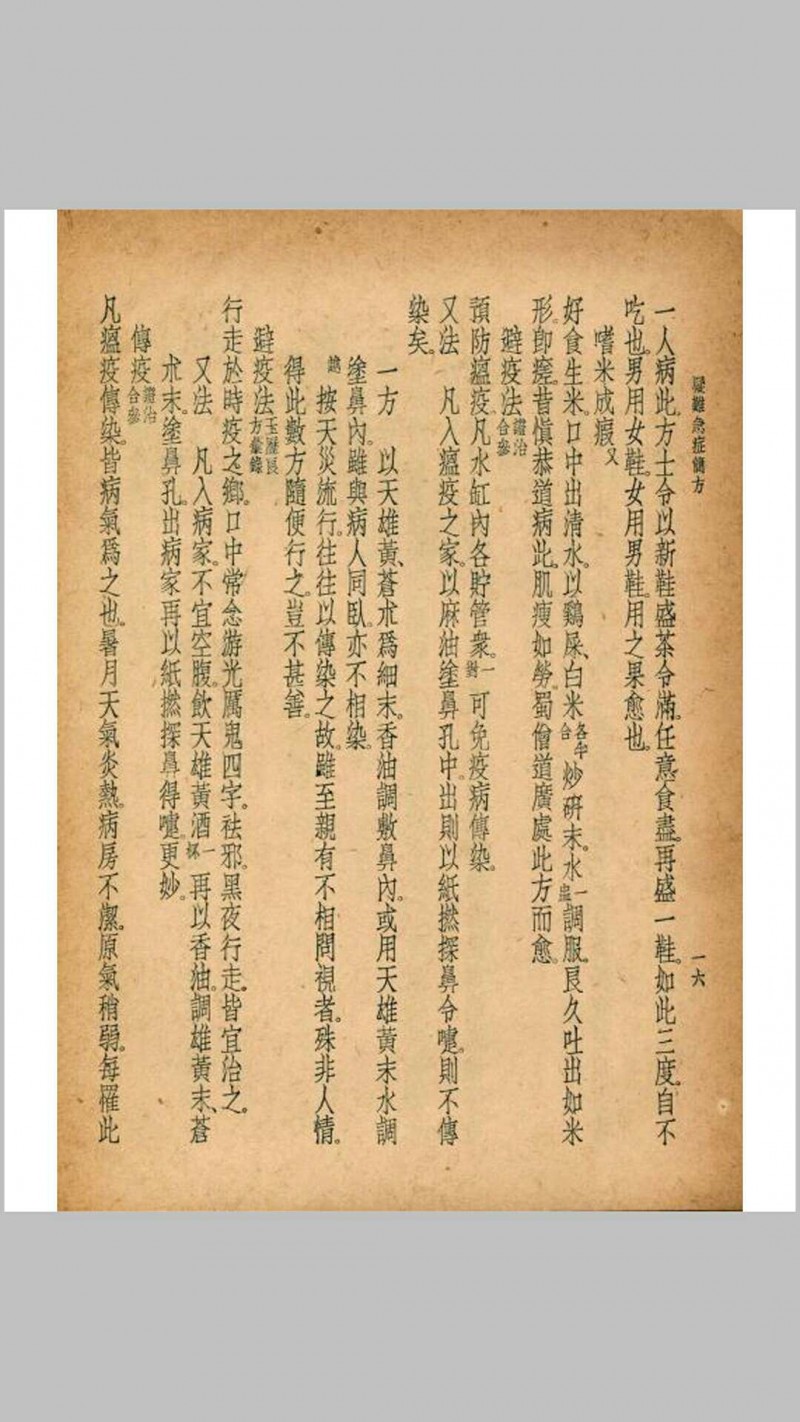 疑難急症簡方
一六
一人病此。方士令以新鞋盛茶令滿。任意食盡。再盛一鞋。如此三度。自不
吃也。男用女鞋。女用男鞋。用之果愈也。
嗜米成瘕又
好食生米。口中出清水。以鷄屎、白米各半合炒研末。水一盅調服。良久吐出如米
形。卽瘥。昔愼恭道病此。肌瘦如勞。蜀僧道廣處此方而愈。
避疫法證治合參
預防瘟疫。凡水缸內各貯管衆。一劑可免疫病傳染。
又法　凡入瘟疫之家。以麻油塗鼻孔中。出則以紙撚探鼻令嚏。則不傳
染矣。
一方　以天雄黃、蒼朮爲細末。香油調敷鼻內。或用天雄黃末水調
塗鼻內。雖與病人同臥。亦不相染。
越按天災流行。往往以傳染之故。雖至親有不相問視者。殊非人情。
得此數方隨便行之。豈不甚善。
避疫法玉歷良方彙錄
行走於時疫之鄕。口中常念游光厲鬼四字。祛邪。黑夜行走。皆宜治之。
又法　凡入病家。不宜空腹。飲天雄黃酒一杯再以香油。調雄黃末、蒼
朮末。塗鼻孔。出病家再以紙撚探鼻得嚏。更妙。
傳疫證治合參
凡瘟疫傳染。皆病氣爲之也。暑月天氣炎熱。病房不潔。原氣稍弱。每罹此